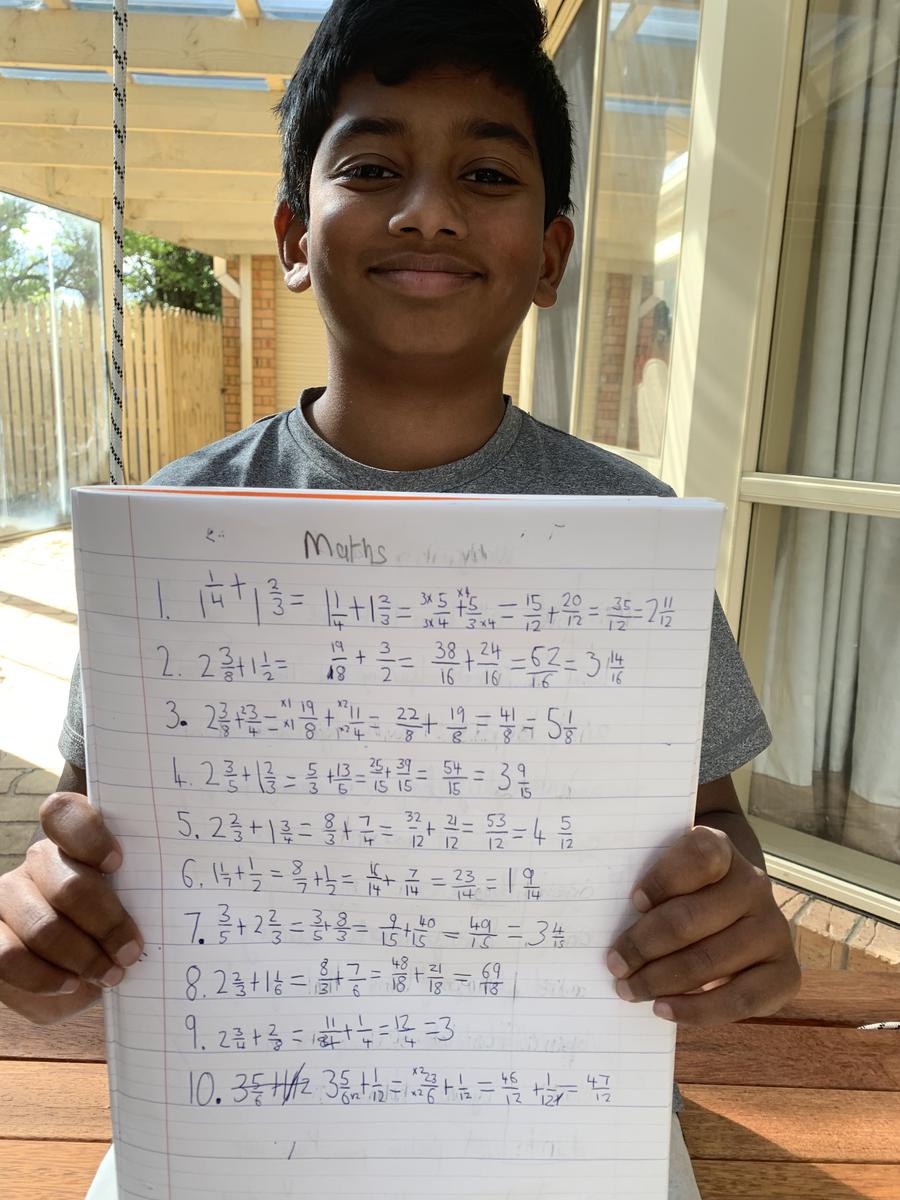 Maths
1. 1 1/4 + 1 2/3 = 1 1/4 + 1 2/3 = 3x 5/3x 4 + x4 5/3 x4 = 15/12 + 20/12 = 35/12 = 2 11/12
2. 2 3/8 + 1 1/2 = 19/8 + 3/2 = 38/16 + 24/16 = 62/16 = 3 14/16
3. 2 3/8 + 2 3/4 = x1 19/x1 8 + x2 11/x2 4 = 22/8 + 19/8 = 41/8 = 5 1/8
4. 2 3/5 + 1 2/3 = 5/3 + 13/5 = 25/15 + 39/15 = 54/15 = 3 9/15
5. 2 2/3 + 1 3/4 = 8/3 + 7/4 = 32/12 + 21/12 = 53/12 = 4 5/12
6. 1 1/7 + 1/2 = 8/7 + 1/2 = 16/14 + 7/14 = 23/14 = 1 9/14
7. 3/5 + 2 2/3 = 3/5 + 8/3 = 9/15 + 40/15 = 49/15 = 3 4/15
8. 2 2/3 + 1 1/6 = 8/3 + 7/6 = 48/18 + 21/18 = 69/18
9. 2 3/4 + 2/8 = 11/4 + 1/4 = 12/4 = 3
10. 3 5/6 + 3 5/6 x2 + 1/12 = x2 23/x2 6 + 1/12 = 46/12 + 1/12 = 47/12